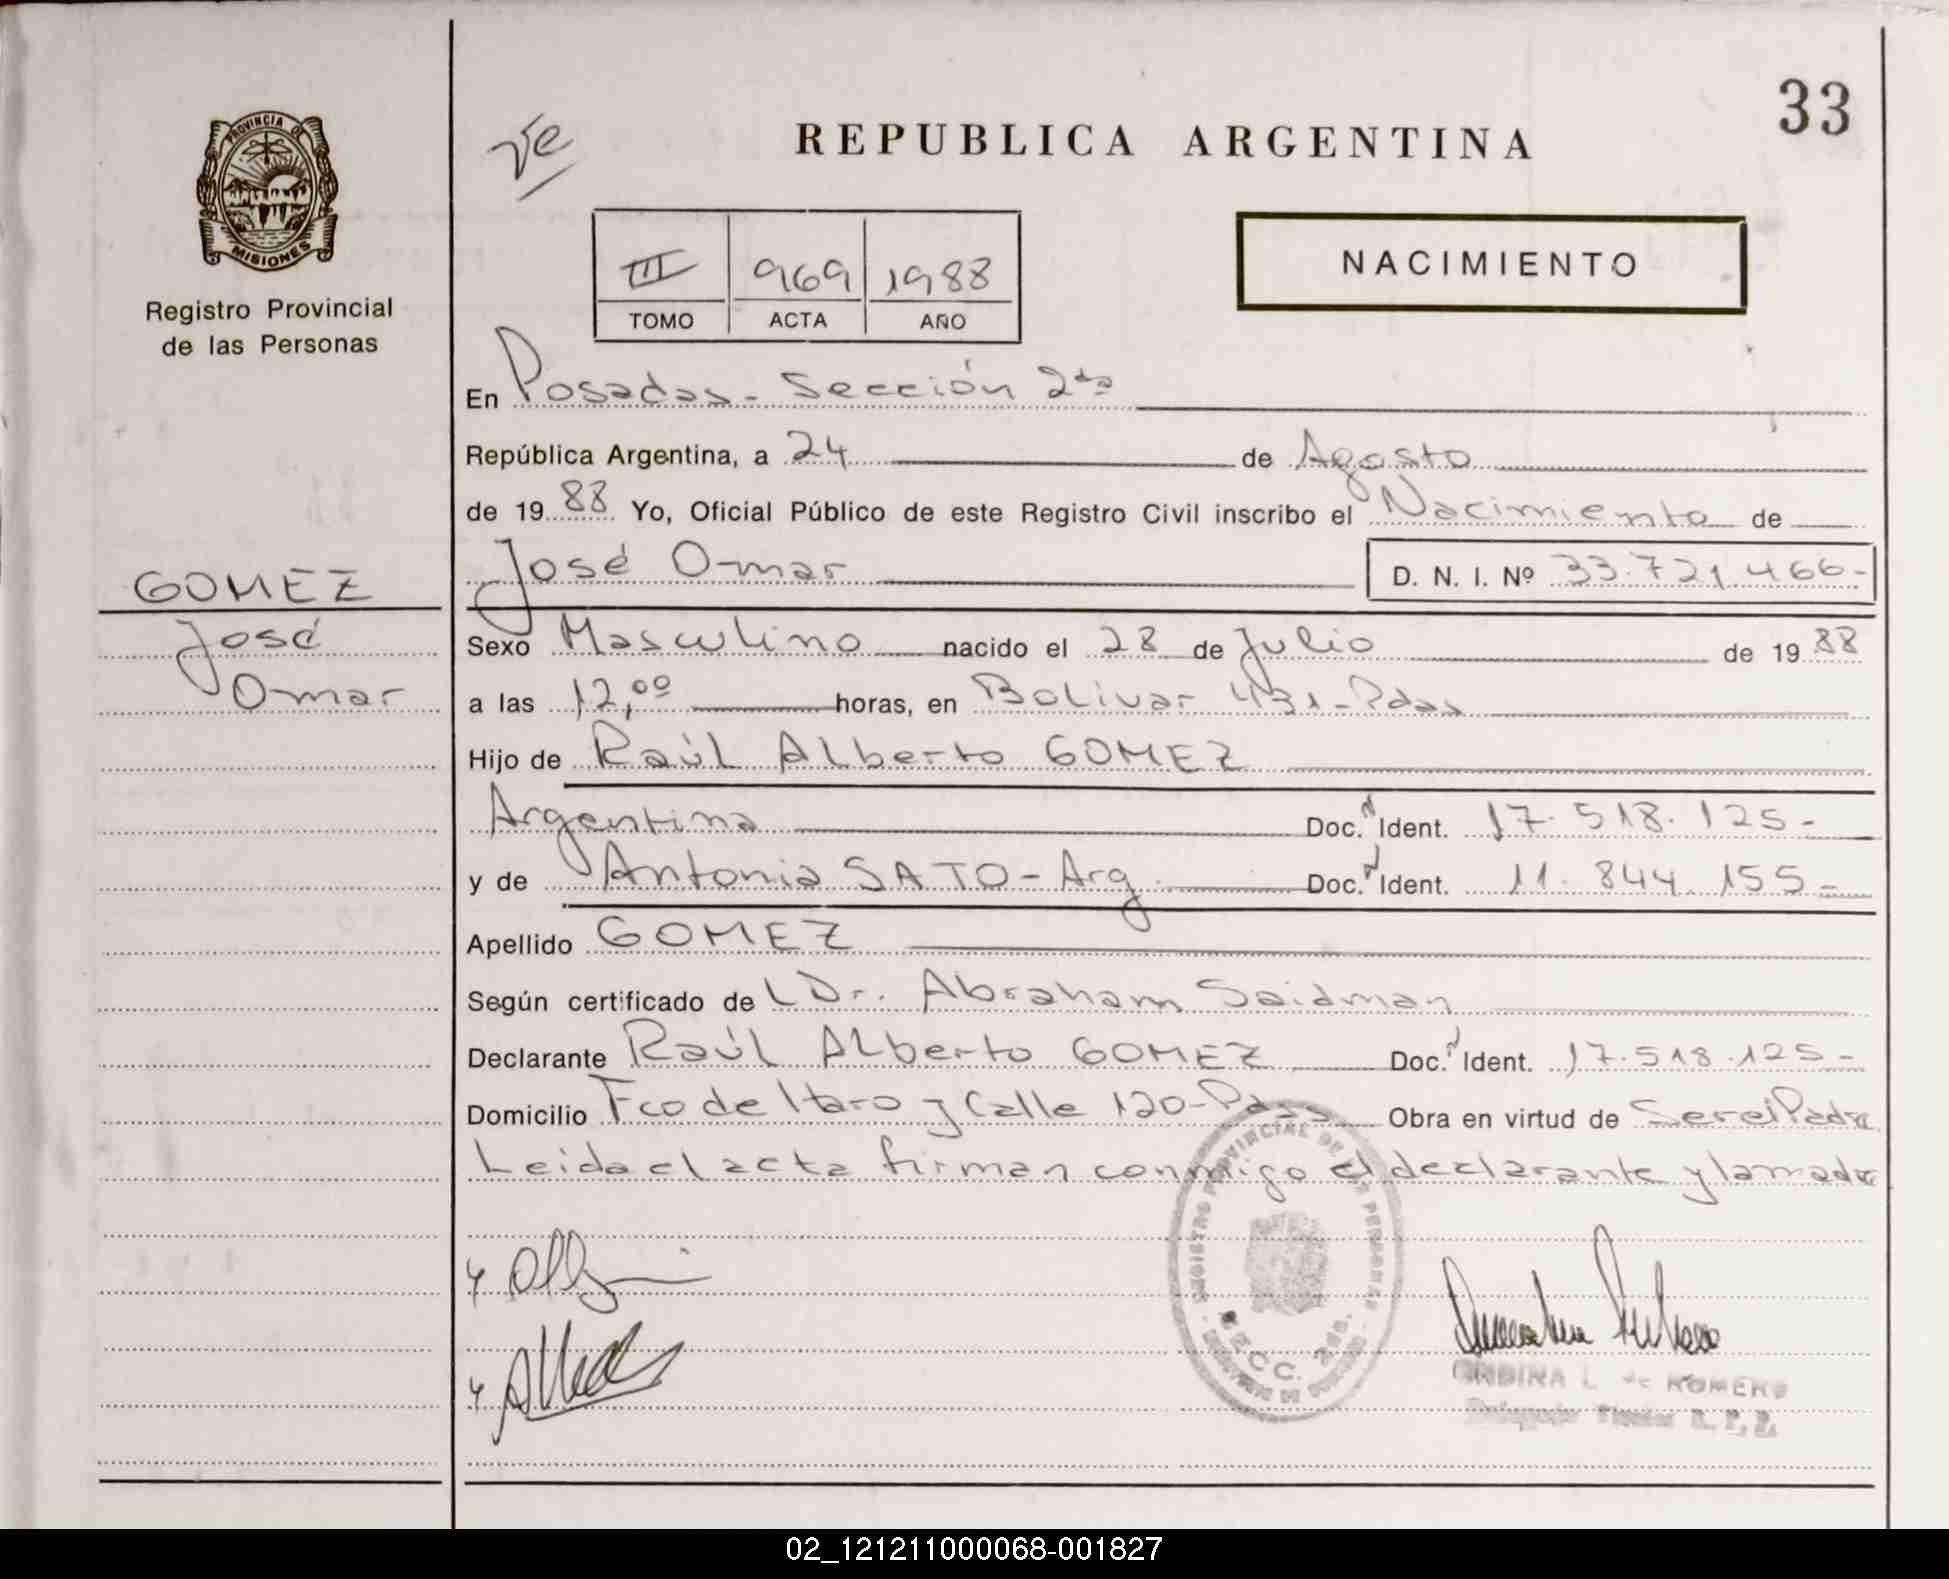 33
REPUBLICA ARGENTINA
PROVINCIA DE
MISIONES
Registro Provincial
de las Personas
NACIMIENTO
III 969 1988
TOMO ACTA AÑO
En Posadas - Sección 2da
República Argentina, a 24 de Agosto
de 19 88 Yo, Oficial Público de este Registro Civil inscribo el Nacimiento de
José Omar D. N. I. Nº 33.721.466-
GOMEZ
José
Omar
Sexo Masculino nacido el 28 de Julio de 19 88
a las 12,00 horas, en Bolivar 431 - Pdas
Hijo de Raúl Alberto GOMEZ
Argentina Doc. Ident. 17.518.125-
y de Antonia SATO - Arg. Doc. Ident. 11.844.155-
Apellido GOMEZ
Según certificado de L Dr. Abraham Saidman
Declarante Raúl Alberto GOMEZ Doc. Ident. 17.518.125-
Domicilio Fco de Haro y Calle 120 - Pdas Obra en virtud de Ser el Padre
Leida el acta firman conmigo el declarante y la madre
REGISTRO PROVINCIAL DE LAS PERSONAS
L. de ROMERO
R. P. P.
02_121211000068-001827